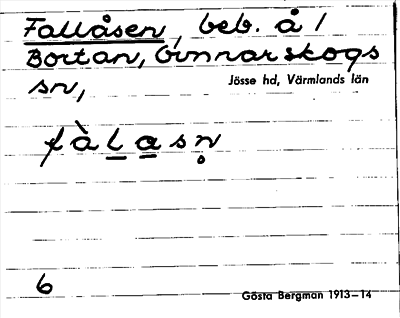 Fallåsen, beb. å /
Bortan, Gunnarskogs
sn,
Jösse hd, Värmlands län
fàlasn̥
6
Gösta Bergman 1913–14